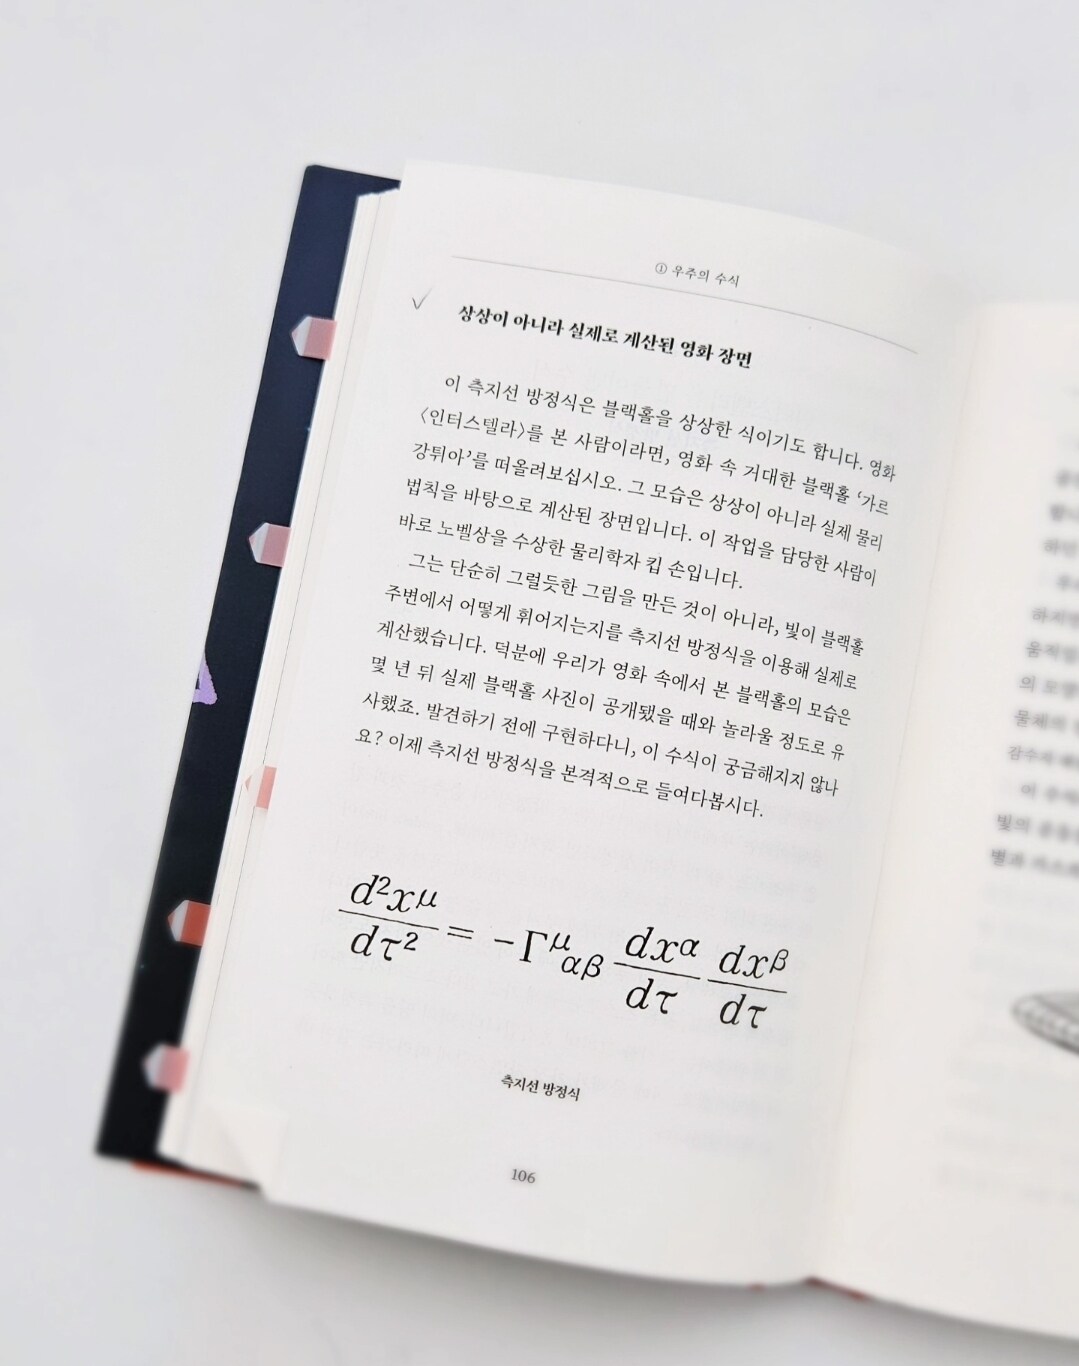 ① 우주의 수식
상상이 아니라 실제로 계산된 영화 장면
이 측지선 방정식은 블랙홀을 상상한 식이기도 합니다. 영화
〈인터스텔라〉를 본 사람이라면, 영화 속 거대한 블랙홀 ‘가르
강튀아’를 떠올려보십시오. 그 모습은 상상이 아니라 실제 물리
법칙을 바탕으로 계산된 장면입니다. 이 작업을 담당한 사람이
바로 노벨상을 수상한 물리학자 킵 손입니다.
그는 단순히 그럴듯한 그림을 만든 것이 아니라, 빛이 블랙홀
주변에서 어떻게 휘어지는지를 측지선 방정식을 이용해 실제로
계산했습니다. 덕분에 우리가 영화 속에서 본 블랙홀의 모습은
몇 년 뒤 실제 블랙홀 사진이 공개됐을 때와 놀라울 정도로 유
사했죠. 발견하기 전에 구현하다니, 이 수식이 궁금해지지 않나
요? 이제 측지선 방정식을 본격적으로 들여다봅시다.
d²xᵘ/dτ² = -Γᵘαβ dxᵅ/dτ dxᵝ/dτ
측지선 방정식
106